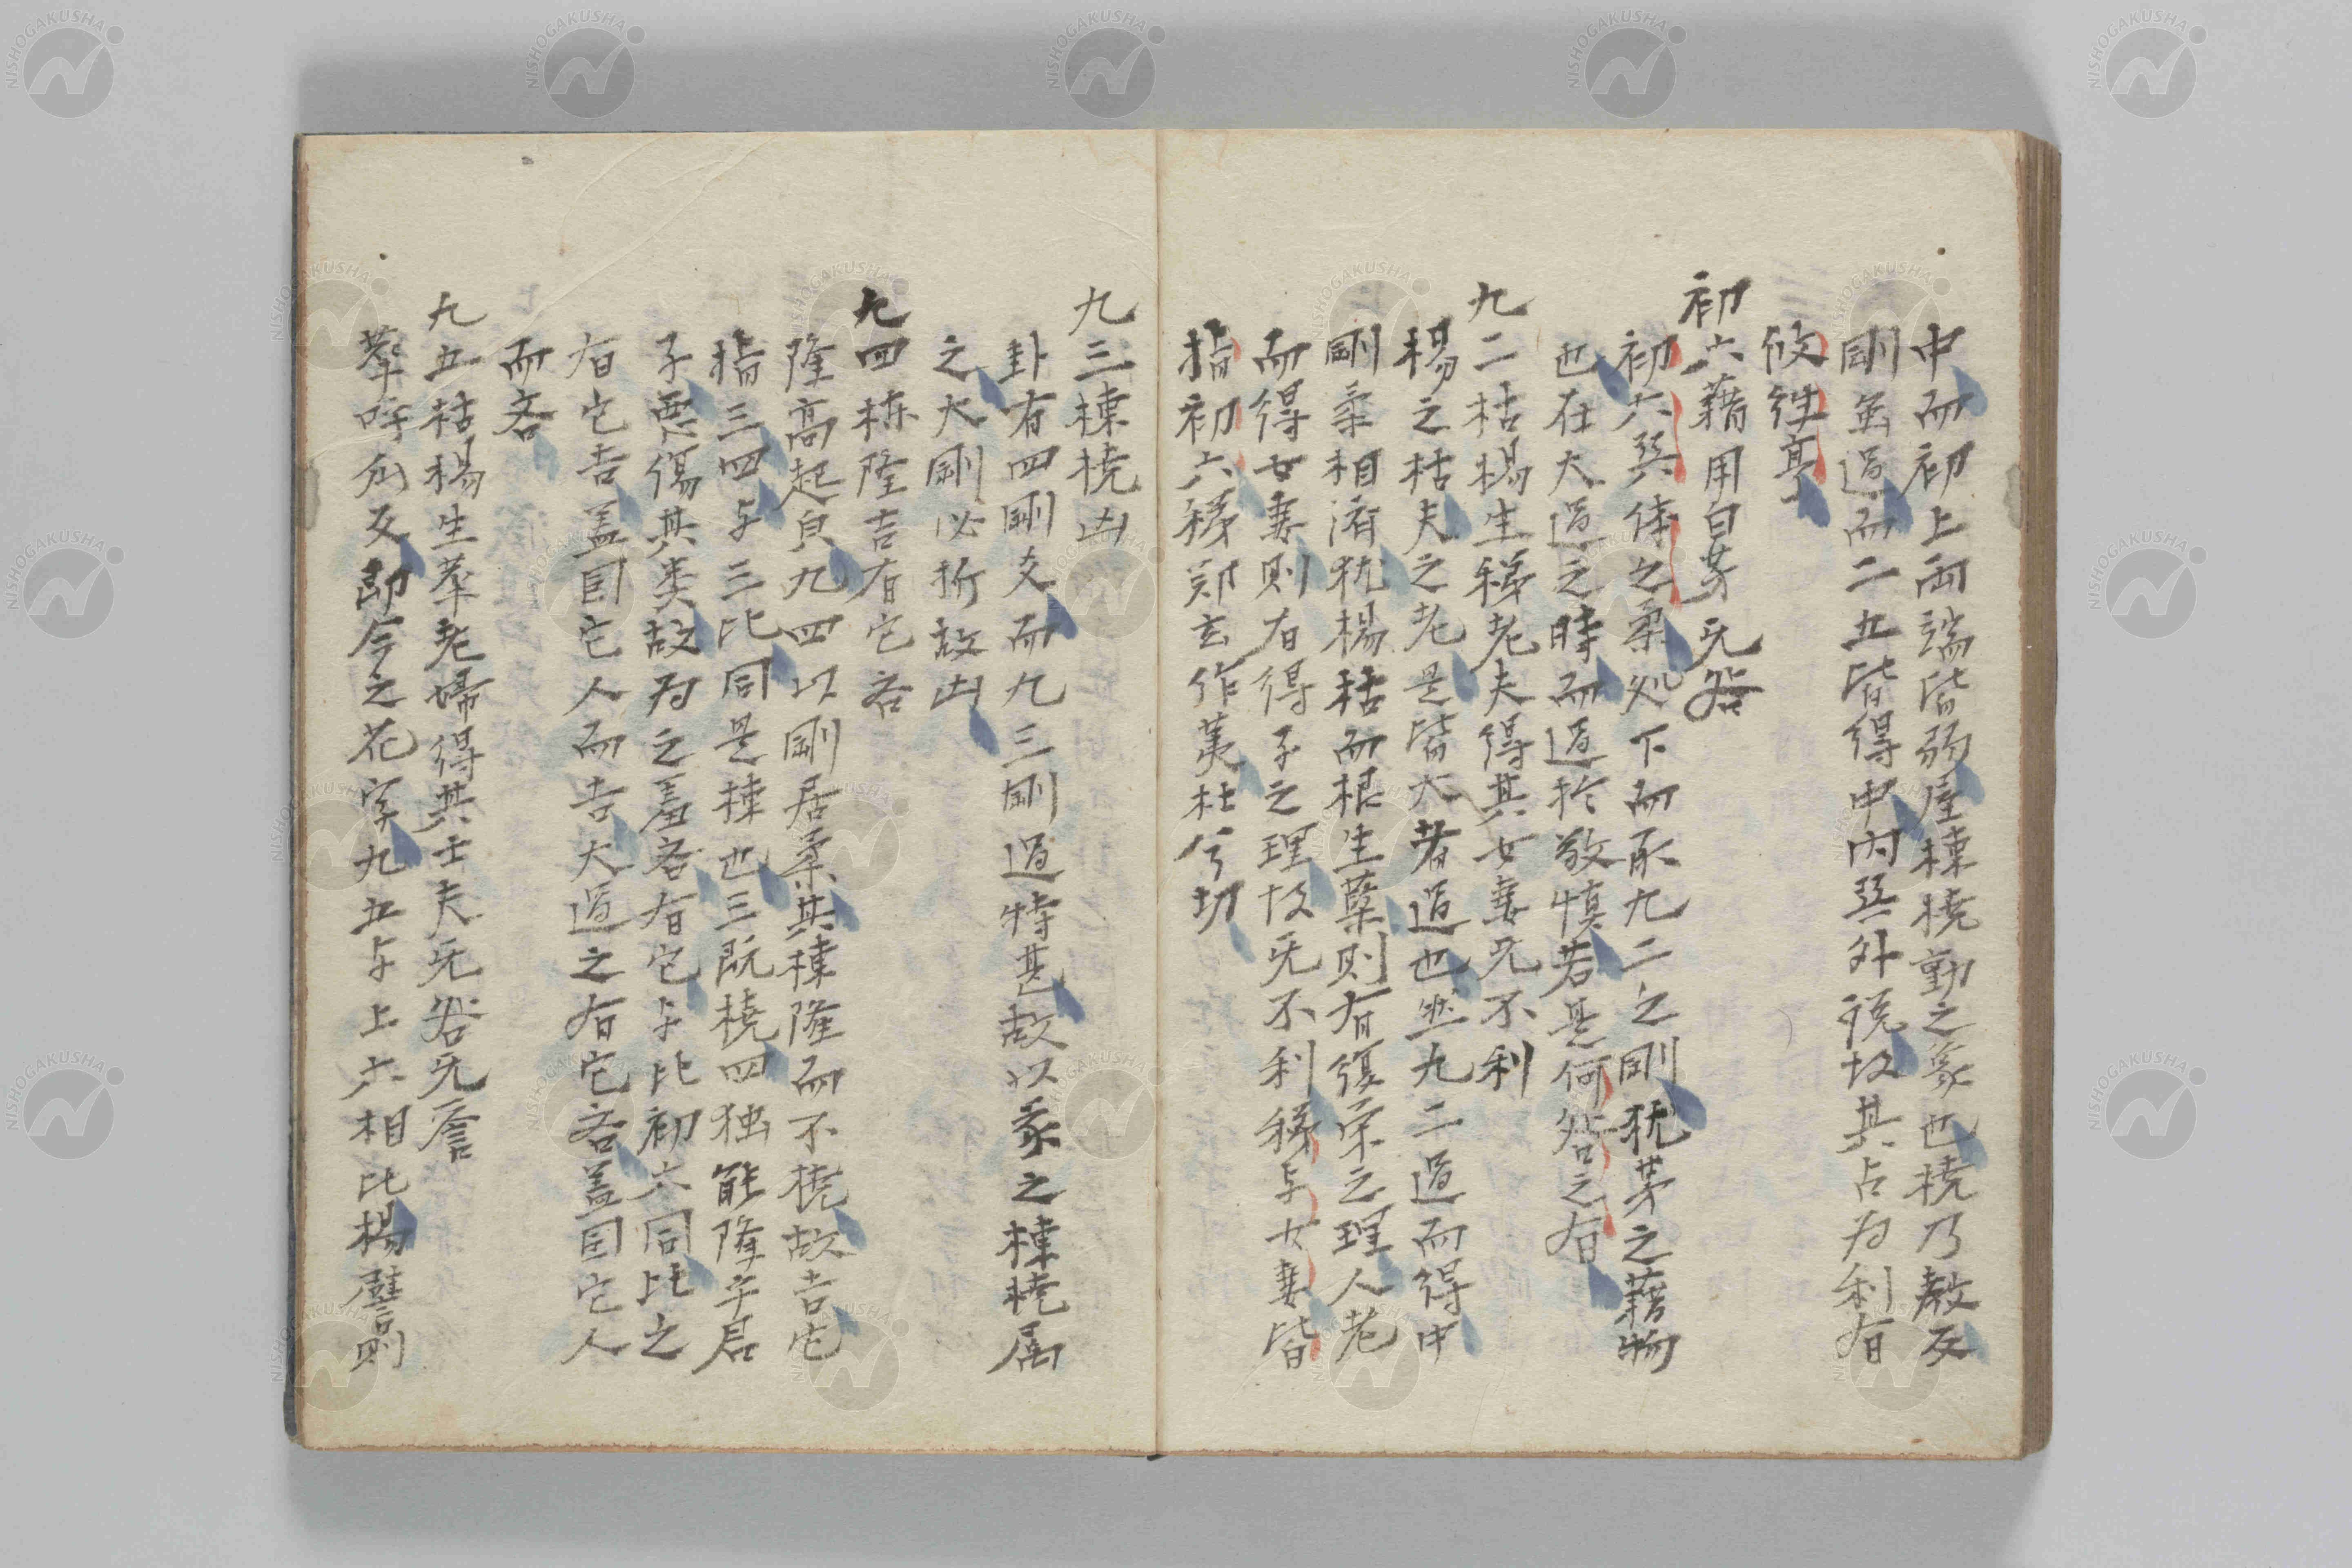 中而初上両端皆弱屋棟橈動之象也橈乃教反
剛虽過而二五皆得中内巽外説故其占为利有
攸往亨
初六藉用白茅无咎
初六巽体之柔処下而承九二之剛犹茅之藉物
也在大過之時而過於敬慎若是何咎之有
九二枯楊生稊老夫得其女妻无不利
楊之枯夫之老是皆大者過也然九二過而得中
剛柔相済犹楊枯而根生蘖則有復栄之理人老
而得女妻則有得子之理故无不利稊与女妻皆
指初六稊鄭玄作荑杜兮切
九三棟橈凶
卦有四剛爻而九三剛過特甚故以彖之棟橈属
之大剛必折故凶
九四栋隆吉有它吝
隆高起皃九四以剛居柔其棟隆而不橈故吉它
指三四与三比同是棟也三既橈四独能隆乎君
子悪傷其类故为之羞吝有它与比初六同比之
有它吉盖因它人而吉大過之有它吝盖因它人
而吝
九五枯楊生華老婦得其士夫无咎无誉
華呼瓜反即今之花字九五与上六相比楊譬則